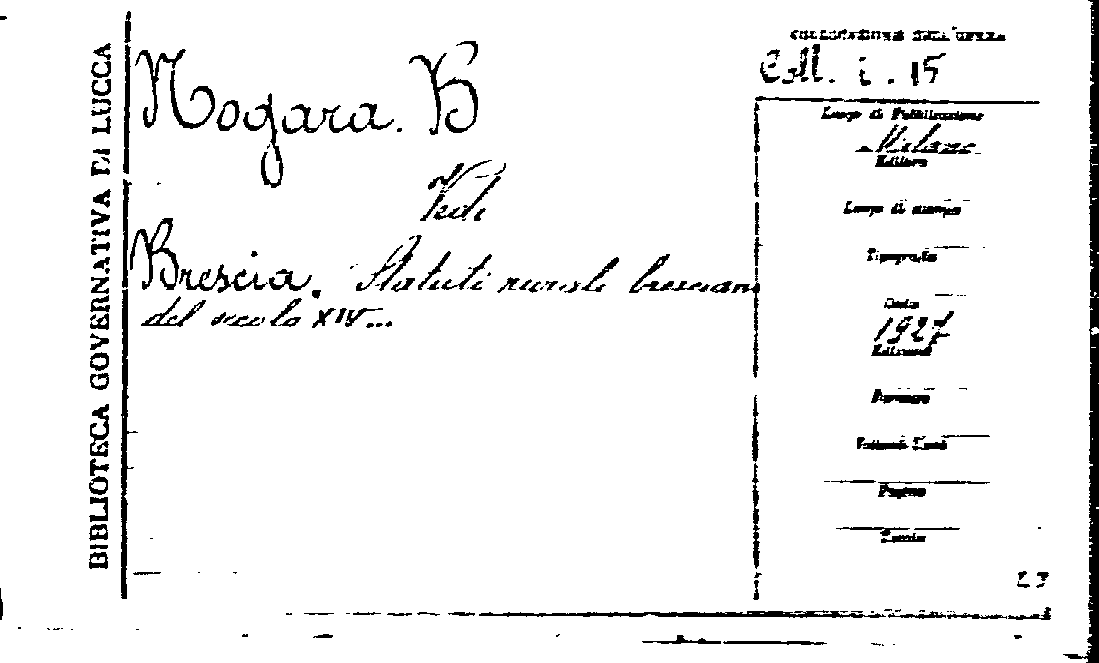 BIBLIOTECA GOVERNATIVA DI LUCCA
Nogara. B
Vedi
Brescia. Statuti rurali bresciani
del secolo XIV...
COLLOCAZIONE DELL'OPERA
Coll. i. 15
Luogo di Pubblicazione
Milano
Editore
Luogo di stampa
Tipografia
Data
1927
Edizione
Formato
Pagine